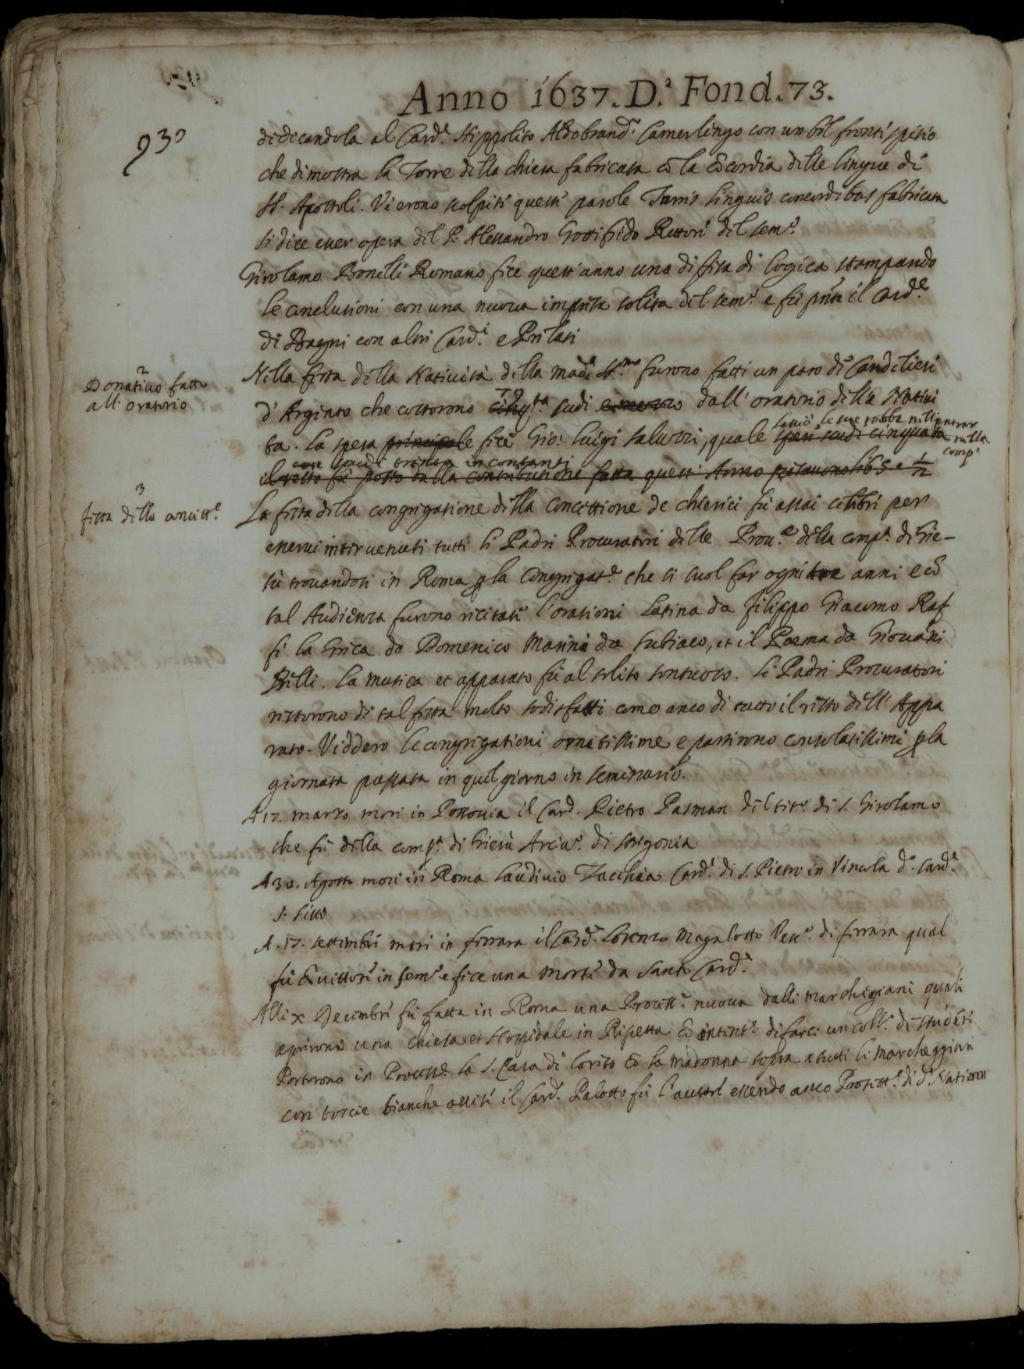 Anno 1637. D.ª Fond. 73.
930
dedicandola al Card.e Hippolito Aldobrand.i Camerlingo con un bel frontispitio
che dimostra la Torre della chiesa fabricata cō la cōcordia delle lingue di
SS. Apostoli. Vi erono scolpite queste parole Turris linguis concordibus fabricata
si dice esser opera del P. Alessandro Gottifredo Rettore del sem.o
Girolamo Bonelli Romano fece quest'anno una difesa di logica stampando
le conclusioni con una nuova impresa solita del sem.o e fù pnte il Card.le
di Bagni con altri Card.i e Prelati
2
Donativo fatto
all'oratorio
Nella festa della Natività della mad.e SS.ma furono fatti un paro di Candelieri
d'Argento che costorono scudi e mezzo dall'oratorio della Nativi
lasciò le sue robbe nell'entrar
ta. la spesa principale fece Gio: Luigi Saluzzi, quale scudi cinquanta nella
comp.a
con scudi trenta in contanti
il resto fù posto dalla contributione fatta quest'Anno 1/2
3
festa della concett.e
La festa della congregatione della Concettione de chierici fù assai celebre per
esservi intervenuti tutti li Padri Procuratori delle Prov.e della comp.a di Gie-
sù trovandosi in Roma p la Congregat.e che si suol far ogni tre anni e cō
tal Audienza furono recitate l'orationi Latina da Filippo Giacomo Raf
fi la Greca da Domenico Manni da Subiaco, et il Poema da Giovāni
Billi. La musica et apparato fù al solito sontuoso. Li Padri Procuratori
restorono di tal festa molto sodisfatti come anco di tutto il resto dell'Appa
rato. Viddero le congregationi ornatissime e partirono consolatissimi p la
giornata passata in quel giorno in seminario.
A 17. marzo morì in Possonia il Card. Pietro Pasman del tit.o di S. Girolamo
che fù della comp.a di Giesù Arciv.o di Strigonia
A 30. Agosto morì in Roma Laudivio Zacchia Card.e di S. Pietro in Vincola d.o Card.e
S. Sisto
A. 17. settembre morì in ferrara il Card.e Lorenzo Magalotto Vesc.o di ferrara qual
fù Convittore in sem.o e fece una morte da Santo Card.e
Alli X Decembre fù fatta in Roma una Process.e nuova dalli marchegiani quali
aprirono una chiesa et Hospidale in Ripetta cō intent.e di farci un coll.o di studēti
Portorono in Process.e la S. Casa di Loreto cō la madonna sopra et tutti li marcheggiani
con torcie bianche accese il Card.e Palotto fù l'autore essendo anco Protett.e di d.a Natione